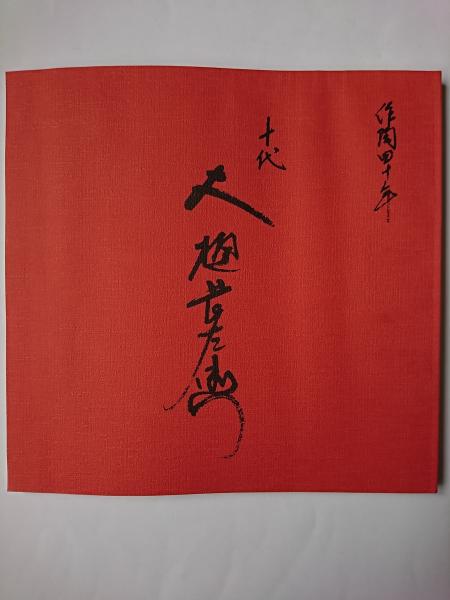 作陶四十年
十代
大樋長左衛門